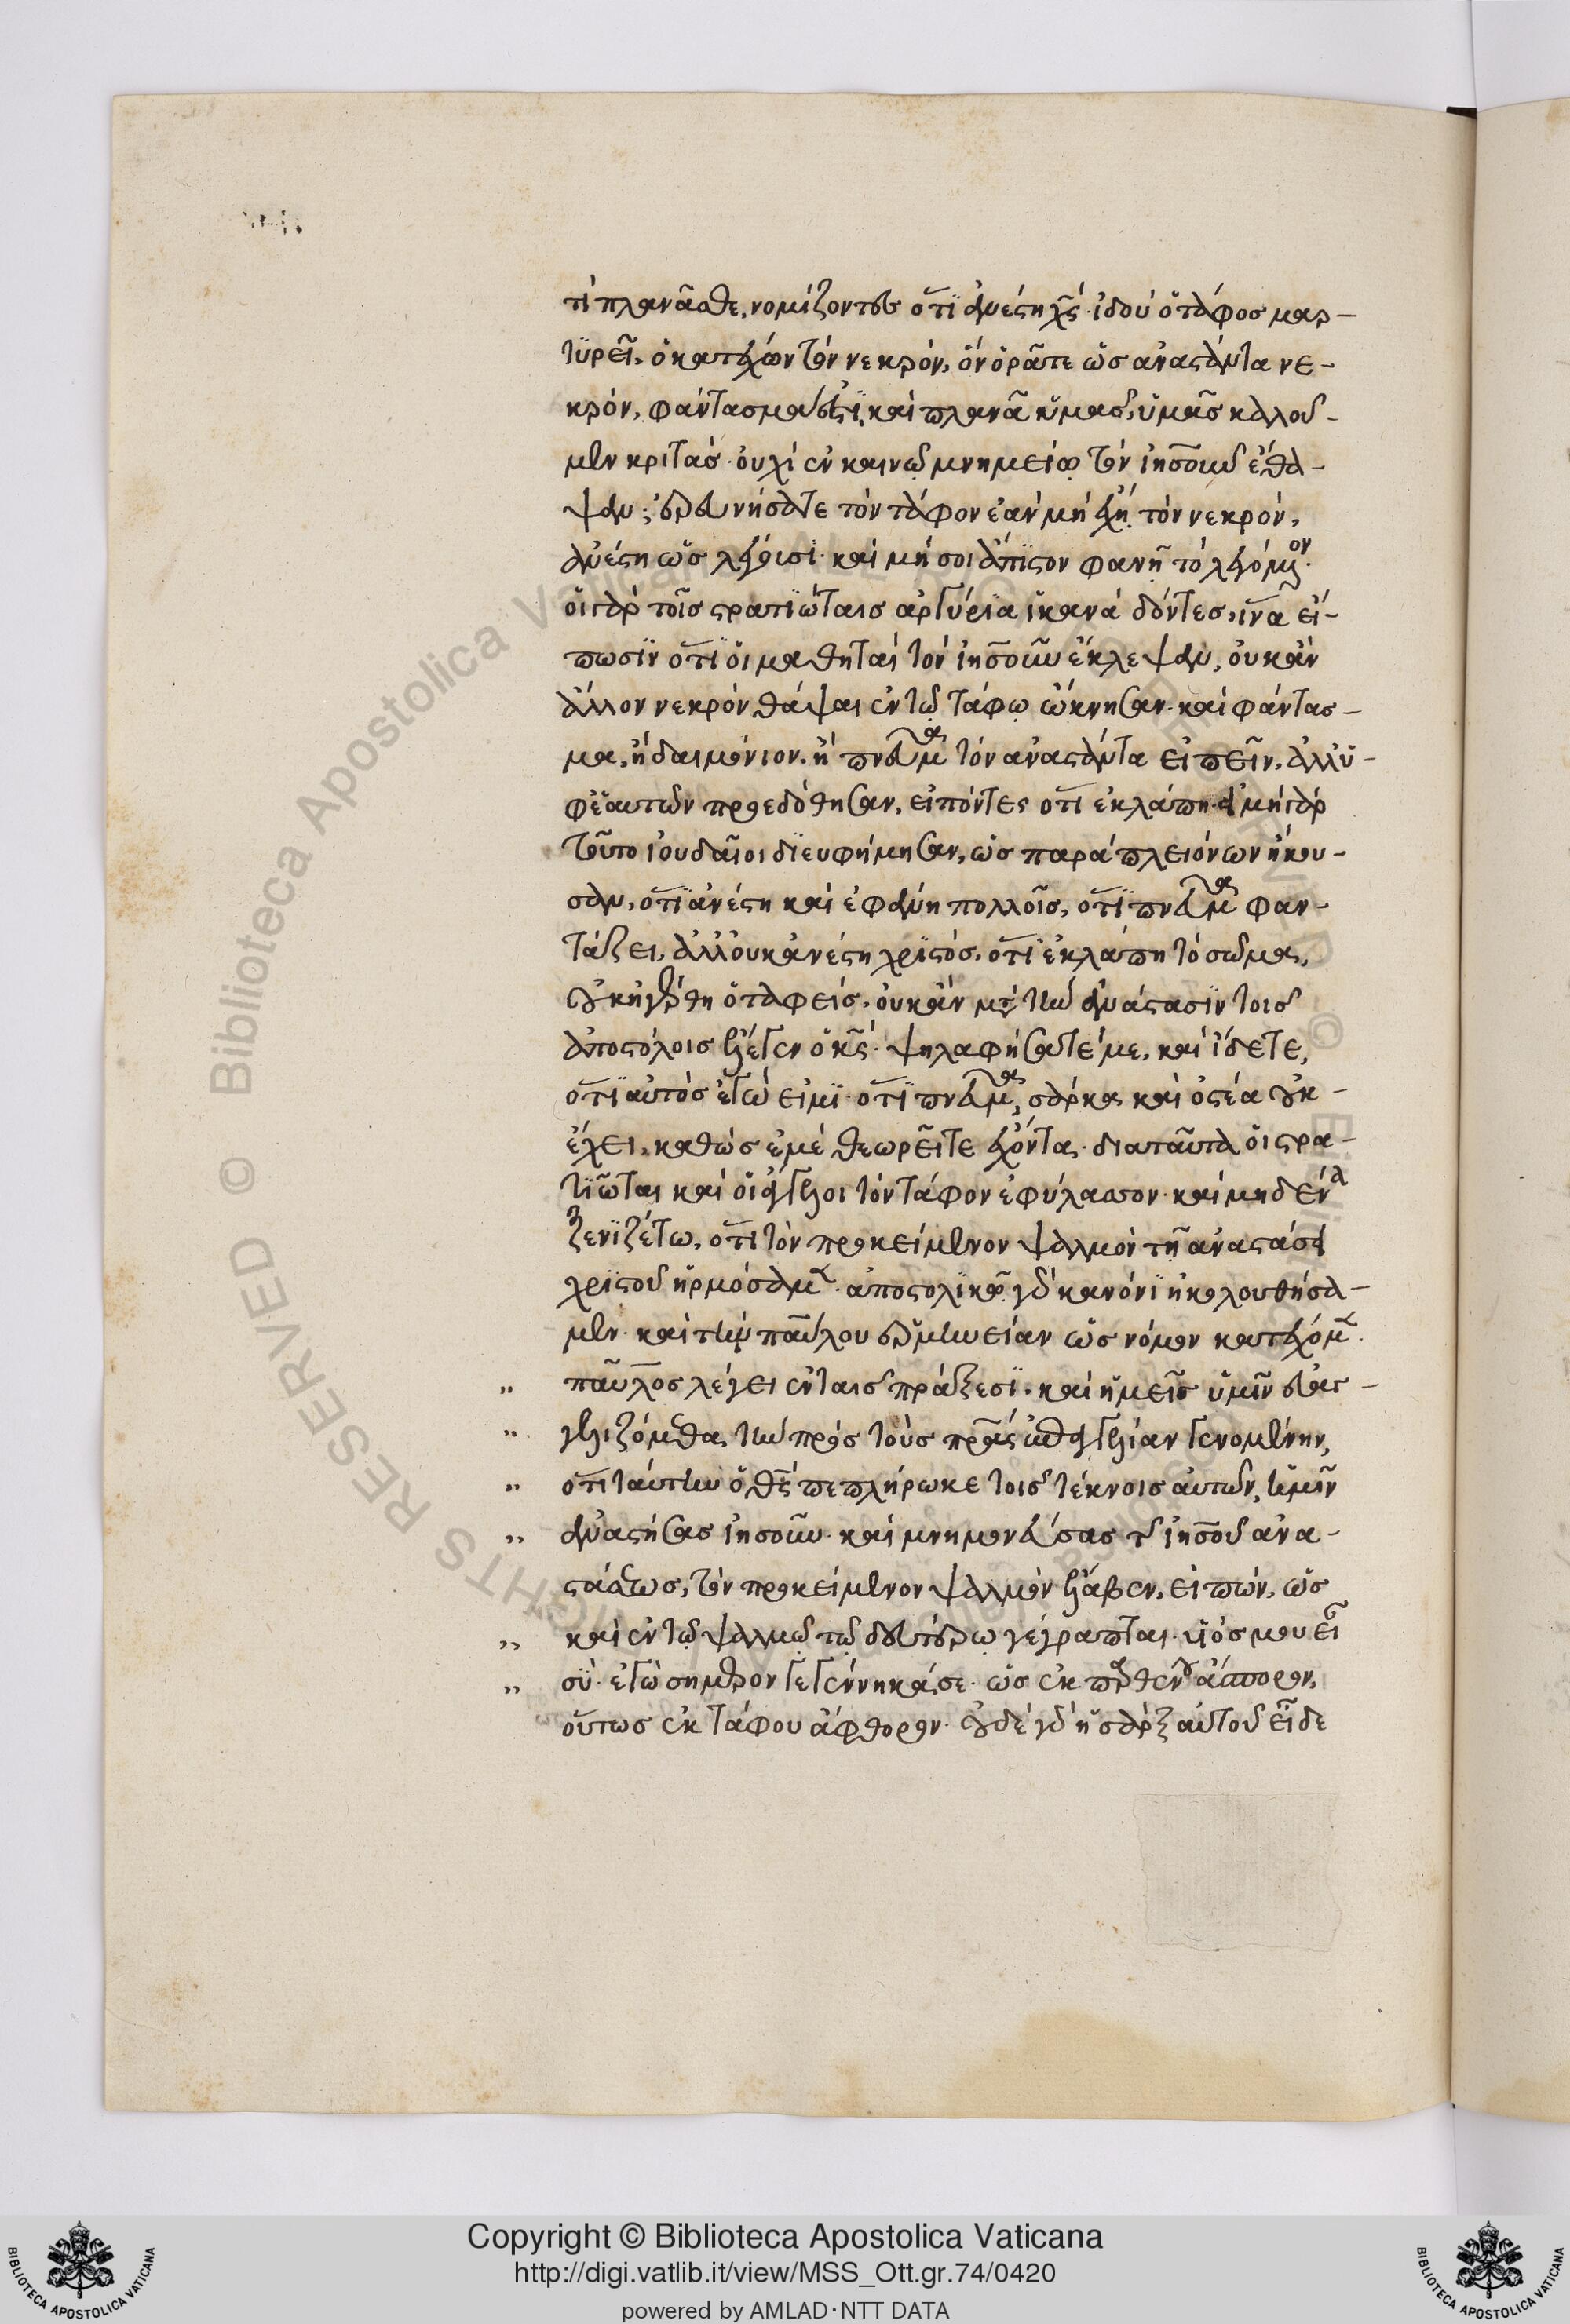 τί πλανᾶσθε, νομίζοντες ὅτι ἀνέστη χς· ἰδού ὁ τάφος μαρ-
τυρεῖ, ὁ κατέχων τόν νεκρόν, ὅν ὁρᾶτε ὡς ἀναστάντα νε-
κρόν, φάντασμα ἐστϊ, καί πλανᾶ ὑμας, ὑμᾶς καλοῦ-
μεν κριτάς· οὐχί ἐν καινῶ μνημείω τόν ἰησοῦν ἐθά-
ψαν; ἐρευνήσατε τόν τάφον ἐαν μή ἔχη τόν νεκρόν,
ἀνέστη ὡς λέγουσϊ· καί μή σοι ἄπιστον φανῆ τό λεγόμενον·
οἱ γάρ τοῖς στρατιώταις ἀργύρια ἱκανά δόντες, ἵνα εἴ-
πωσϊν ὅτι οἱ μαθηταί τόν ἰησοῦν ἔκλεψαν, οὐκ ἄν
ἄλλον νεκρόν θάψαι ἐν τῶ τάφω ὤκνησαν· καί φάντασ-
μα, ἤ δαιμόνιον, ἤ πνεῦμα τόν ἀναστάντα εἰπεῖν, ἀλλ' ὑ-
φ' ἑαυτῶν προεδόθησαν, εἰπόντες ὅτι ἐκλάπη· εἰ μή γάρ
τοῦτο ἰουδαῖοι διευφήμησαν, ὡς παρά πλειόνων ἤκου-
σαν, ὅτι ἀνέστη καί ἐφάνη πολλοῖς, ὅτι πνεῦμα φαν-
τάζει, ἀλλ' οὐκ ἀνέστη χριστός, ὅτι ἐκλάπη τό σῶμα,
οὐκ ἠγέρθη ὁ ταφείς, οὐκ ἄν μετά τήν ἀνάστασϊν τοις
ἀποστόλοις ἔλεγεν ὁ κς· ψηλαφήσατέ με, καί ἴδετε,
ὅτι αὐτός ἐγώ εἰμϊ· ὅτι πνεῦμα, σάρκα καί ὀστέα οὐκ
ἔχει, καθώς ἐμέ θεωρεῖτε ἔχοντα· διαταῦτα οἱ στρα-
τιῶται καί οἱ ἄγγελοι τόν τάφον ἐφύλασσον· καί μηδένα
ξενιζέτω, ὅτι τόν προκείμενον ψαλμόν τῆ ἀναστάσει
χριστοῦ ἡρμόσαμεν· ἀποστολικῶ γάρ κανόνϊ ἠκολουθήσα-
μεν· καί τήν παύλου ἑρμηνείαν ὡς νόμον κατέχομεν·
„ παῦλος λέγει ἐν ταις πράξεσϊ· καί ἡμεῖς ὑμῖν εὐαγ-
„ γελιζόμεθα τήν πρός τούς πρας ἐπαγγελίαν γενομένην,
„ ὅτι ταύτην ὁ θς πεπλήρωκε τοις τέκνοις αὐτῶν, ἡμῖν
„ ἀναστήσας ἰησοῦν· καί μνημονεύσας τῆς ἰησοῦ ἀνα-
στάσεως, τόν προκείμενον ψαλμόν ἔλαβεν, εἰπών, ὡς
„ καί ἐν τῶ ψαλμῶ τῶ δευτέρω γέγραπται· υἱός μου εἶ
„ σύ· ἐγώ σήμερον γεγέννηκά σε· ὡς ἐκ παρθένου ἄσπορον,
οὕτως ἐκ τάφου ἄφθορον· οὐδέ γάρ ἡ σάρξ αὐτοῦ εἶδε
Copyright © Biblioteca Apostolica Vaticana
http://digi.vatlib.it/view/MSS_Ott.gr.74/0420
powered by AMLAD·NTT DATA